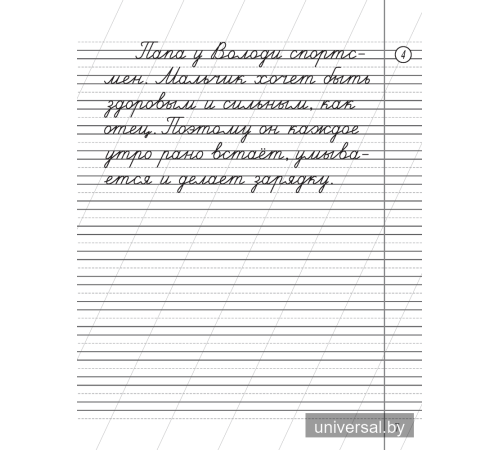 Папа у Володи спортс-
4
мен. Мальчик хочет быть
здоровым и сильным, как
отец. Поэтому он каждое
утро рано встаёт, умыва-
ется и делает зарядку.
universal.by